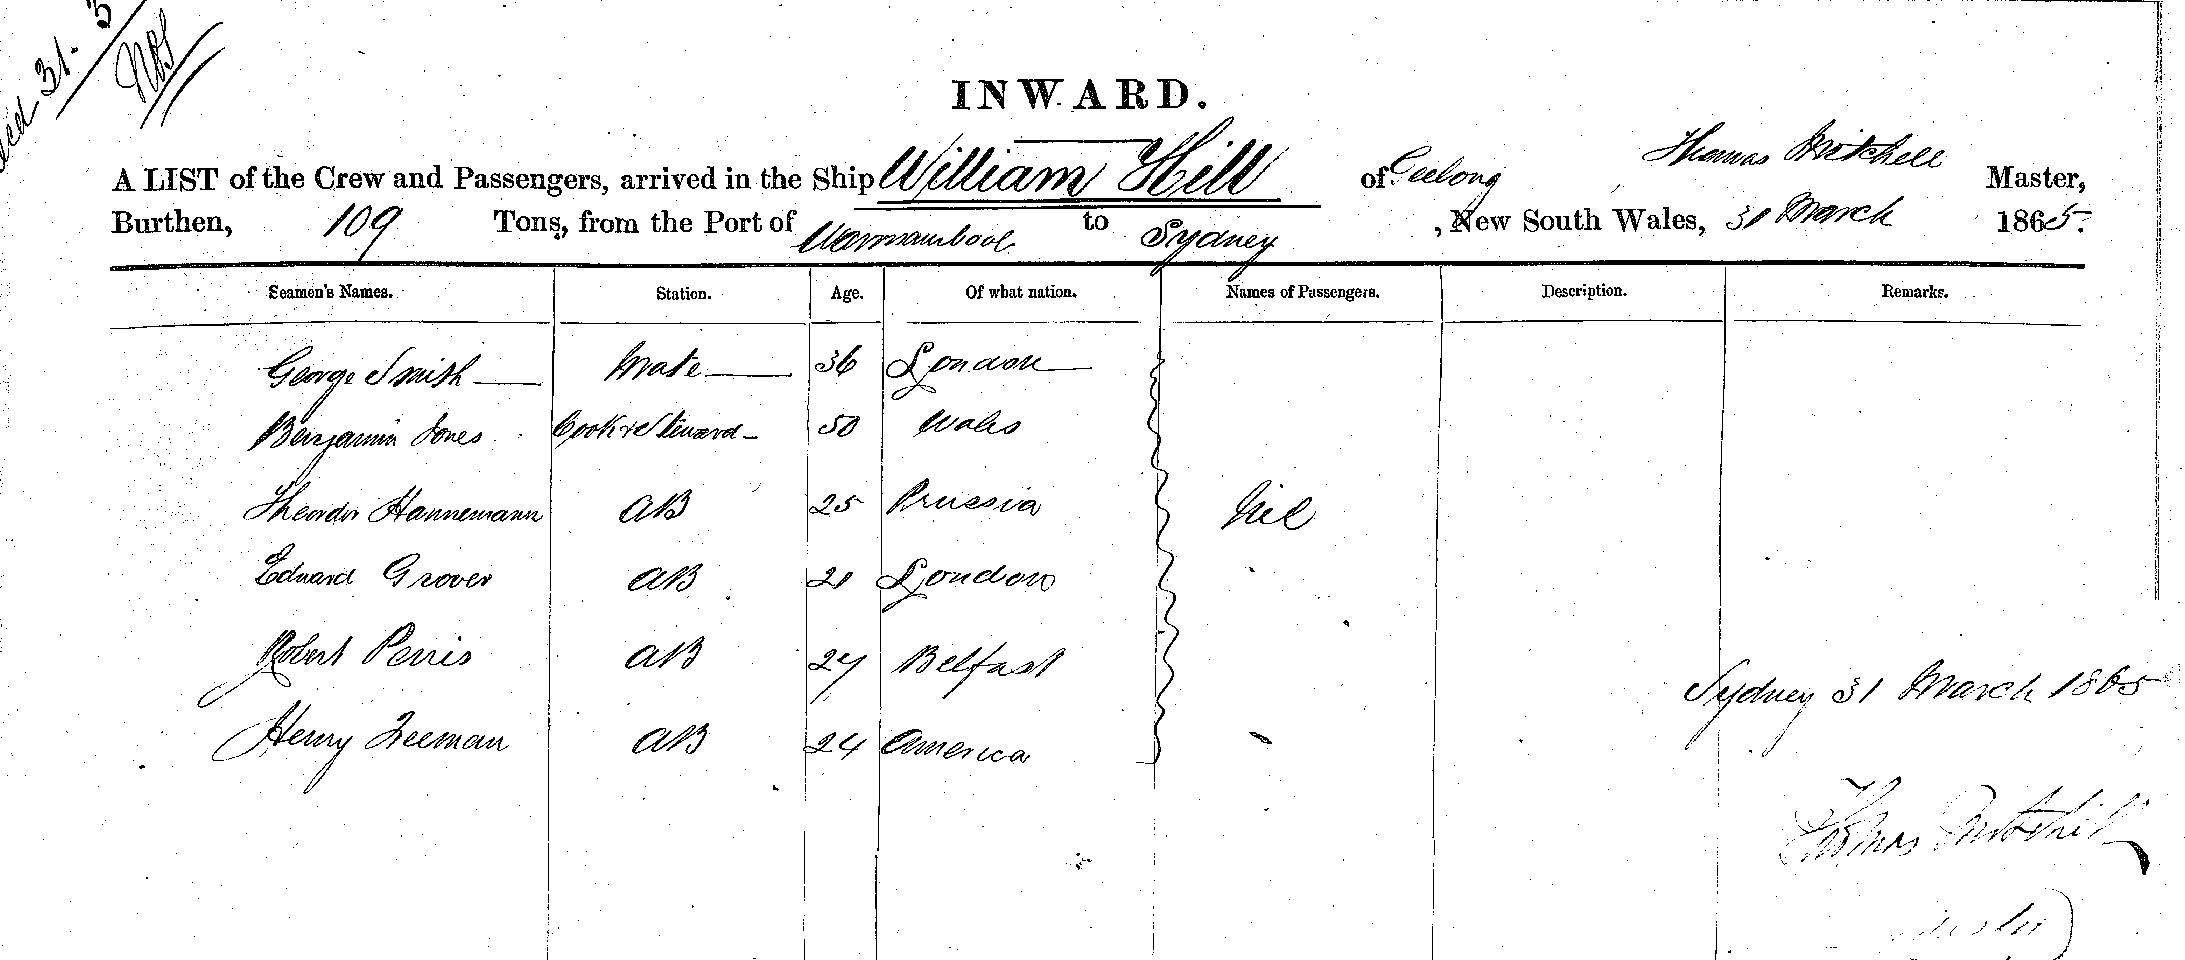 31. 3
INWARD.
A LIST of the Crew and Passengers, arrived in the Ship William Hill of Geelong Thomas Mitchell Master,
Burthen, 109 Tons, from the Port of Warrnambool to Sydney , New South Wales, 31 March 1865.
Seamen's Names. Station. Age. Of what nation. Names of Passengers. Description. Remarks.
George Smith Mate 36 London
Benjamin Jones Cook & Steward 50 Wales
Theodor Hannemann AB 25 Prussia Nil
Edward Grover AB 21 London
Robert Perris AB 27 Belfast
Sydney 31 March 1865
Henry Zeeman AB 24 America
Thomas Mitchell